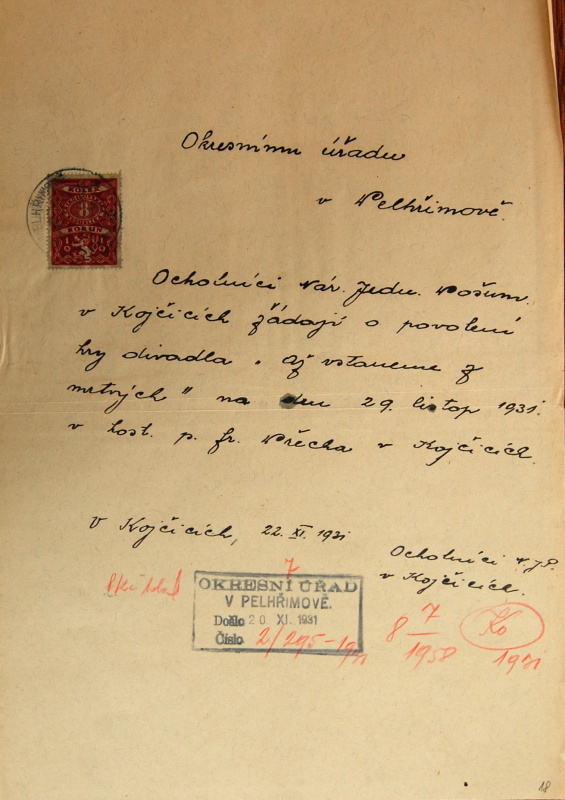 Okresnímu úřadu
v Pelhřimově.
PELHŘIMOV
KOLEK
8
KORUN
Ochotníci Nár. Jedn. Pošum.
v Kojčicích žádají o povolení
hry divadla „Až vstaneme z
mrtvých" na den 29. listop 1931.
v host. p. Fr. v Kojčicích.
V Kojčicích, 22. XI. 1931
Ochotníci N.J.P.
v Kojčicích.
7
OKRESNÍ ÚŘAD
V PELHŘIMOVĚ.
Došlo 20. XI. 1931
Číslo 2/295-1931
8 7 Ko
1958 1931
18